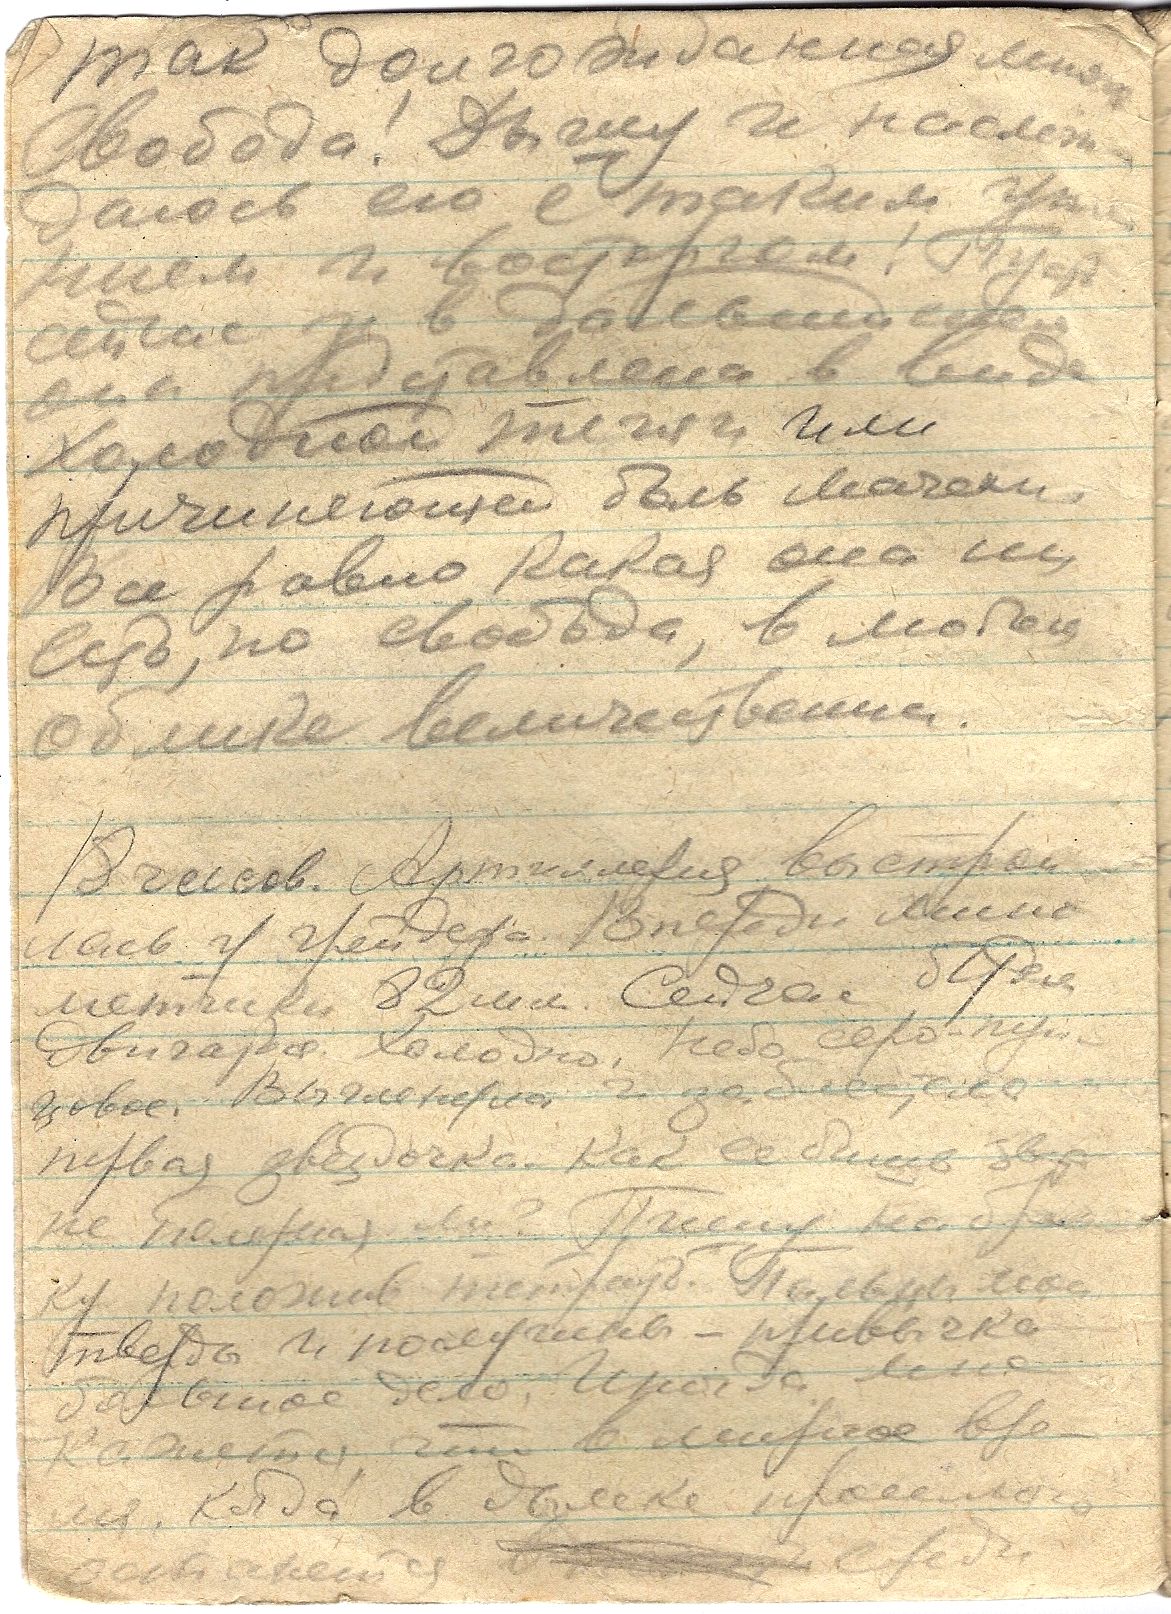 так долгожданная мною
Свобода! Дышу и наслаж-
даюсь ею с таким
нием и восторгом! Пусть
сейчас и в дальнейшем
она представлена в виде
холодной тени или
причиняющей боль
Все равно какая она ни
есть, но свобода, в любом
облике величественна.
8 часов. Артиллерия выстрои-
лась у грейдера. Впереди мино-
метчики 82 мм. Сейчас будем
двигаться. Холодно. Небо серо-пун-
цовое. Вычленена и заблестела
первая звёздочка. Как
не полярная ли? Пишу на
ку положив тетрадь. Пальцы мои
тверды и послушны – привычка
большое дело. Иногда мне
кажется, что в мирное вре-
мя, когда в дымке прошлого
останется среди